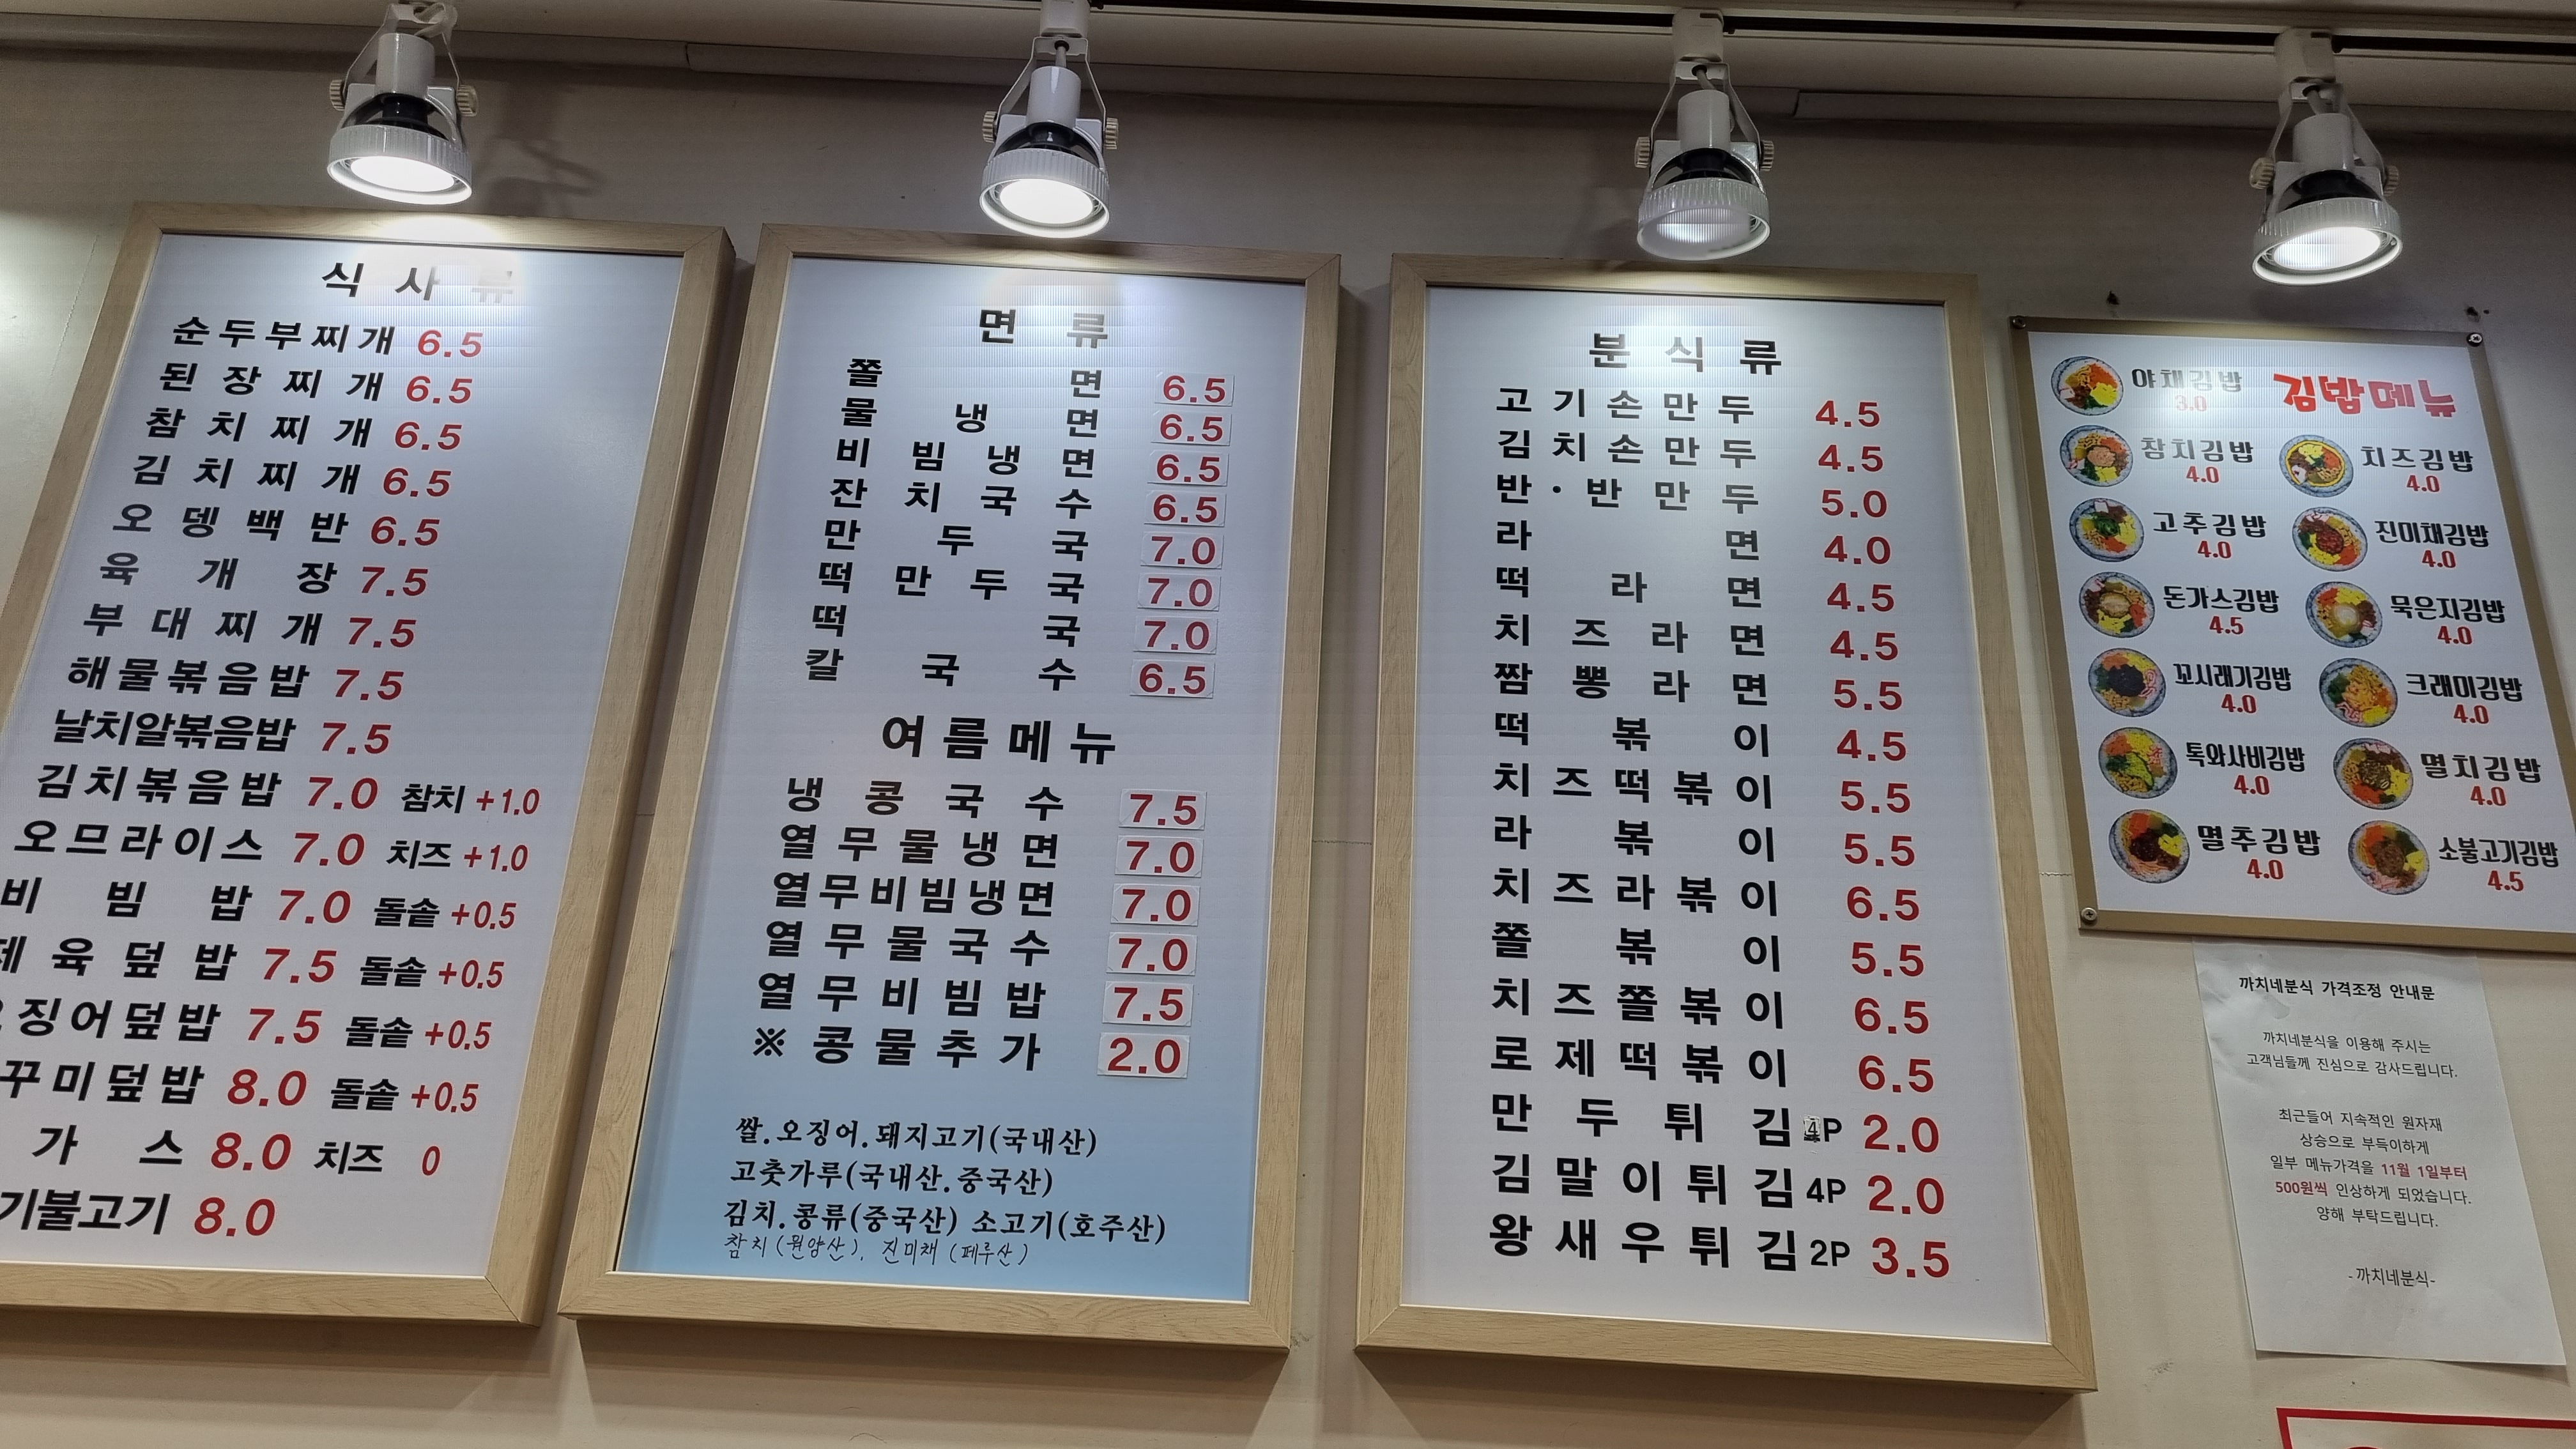 식사류
순두부찌개 6.5
된장찌개 6.5
참치찌개 6.5
김치찌개 6.5
오뎅백반 6.5
육개장 7.5
부대찌개 7.5
해물볶음밥 7.5
날치알볶음밥 7.5
김치볶음밥 7.0 참치 +1.0
오므라이스 7.0 치즈 +1.0
비빔밥 7.0 돌솥 +0.5
제육덮밥 7.5 돌솥 +0.5
징어덮밥 7.5 돌솥 +0.5
꾸미덮밥 8.0 돌솥 +0.5
가스 8.0 치즈 0
기불고기 8.0
면류
쫄면 6.5
물냉면 6.5
비빔냉면 6.5
잔치국수 6.5
만두국 7.0
떡만두국 7.0
떡국 7.0
칼국수 6.5
여름메뉴
냉콩국수 7.5
열무물냉면 7.0
열무비빔냉면 7.0
열무물국수 7.0
열무비빔밥 7.5
※콩물추가 2.0
쌀.오징어.돼지고기(국내산)
고춧가루(국내산.중국산)
김치.콩류(중국산) 소고기(호주산)
참치(원양산), 진미채(페루산)
분식류
고기손만두 4.5
김치손만두 4.5
반·반만두 5.0
라면 4.0
떡라면 4.5
치즈라면 4.5
짬뽕라면 5.5
떡볶이 4.5
치즈떡볶이 5.5
라볶이 5.5
치즈라볶이 6.5
쫄볶이 5.5
치즈쫄볶이 6.5
로제떡볶이 6.5
만두튀김 4P 2.0
김말이튀김 4P 2.0
왕새우튀김 2P 3.5
김밥메뉴
야채김밥 3.0
참치김밥 4.0
치즈김밥 4.0
고추김밥 4.0
진미채김밥 4.0
돈가스김밥 4.5
묵은지김밥 4.0
꼬시래기김밥 4.0
크래미김밥 4.0
톡와사비김밥 4.0
멸치김밥 4.0
멸추김밥 4.0
소불고기김밥 4.5
까치네분식 가격조정 안내문
까치네분식을 이용해 주시는
고객님들께 진심으로 감사드립니다.
최근들어 지속적인 원자재
상승으로 부득이하게
일부 메뉴가격을 11월 1일부터
500원씩 인상하게 되었습니다.
양해 부탁드립니다.
-까치네분식-